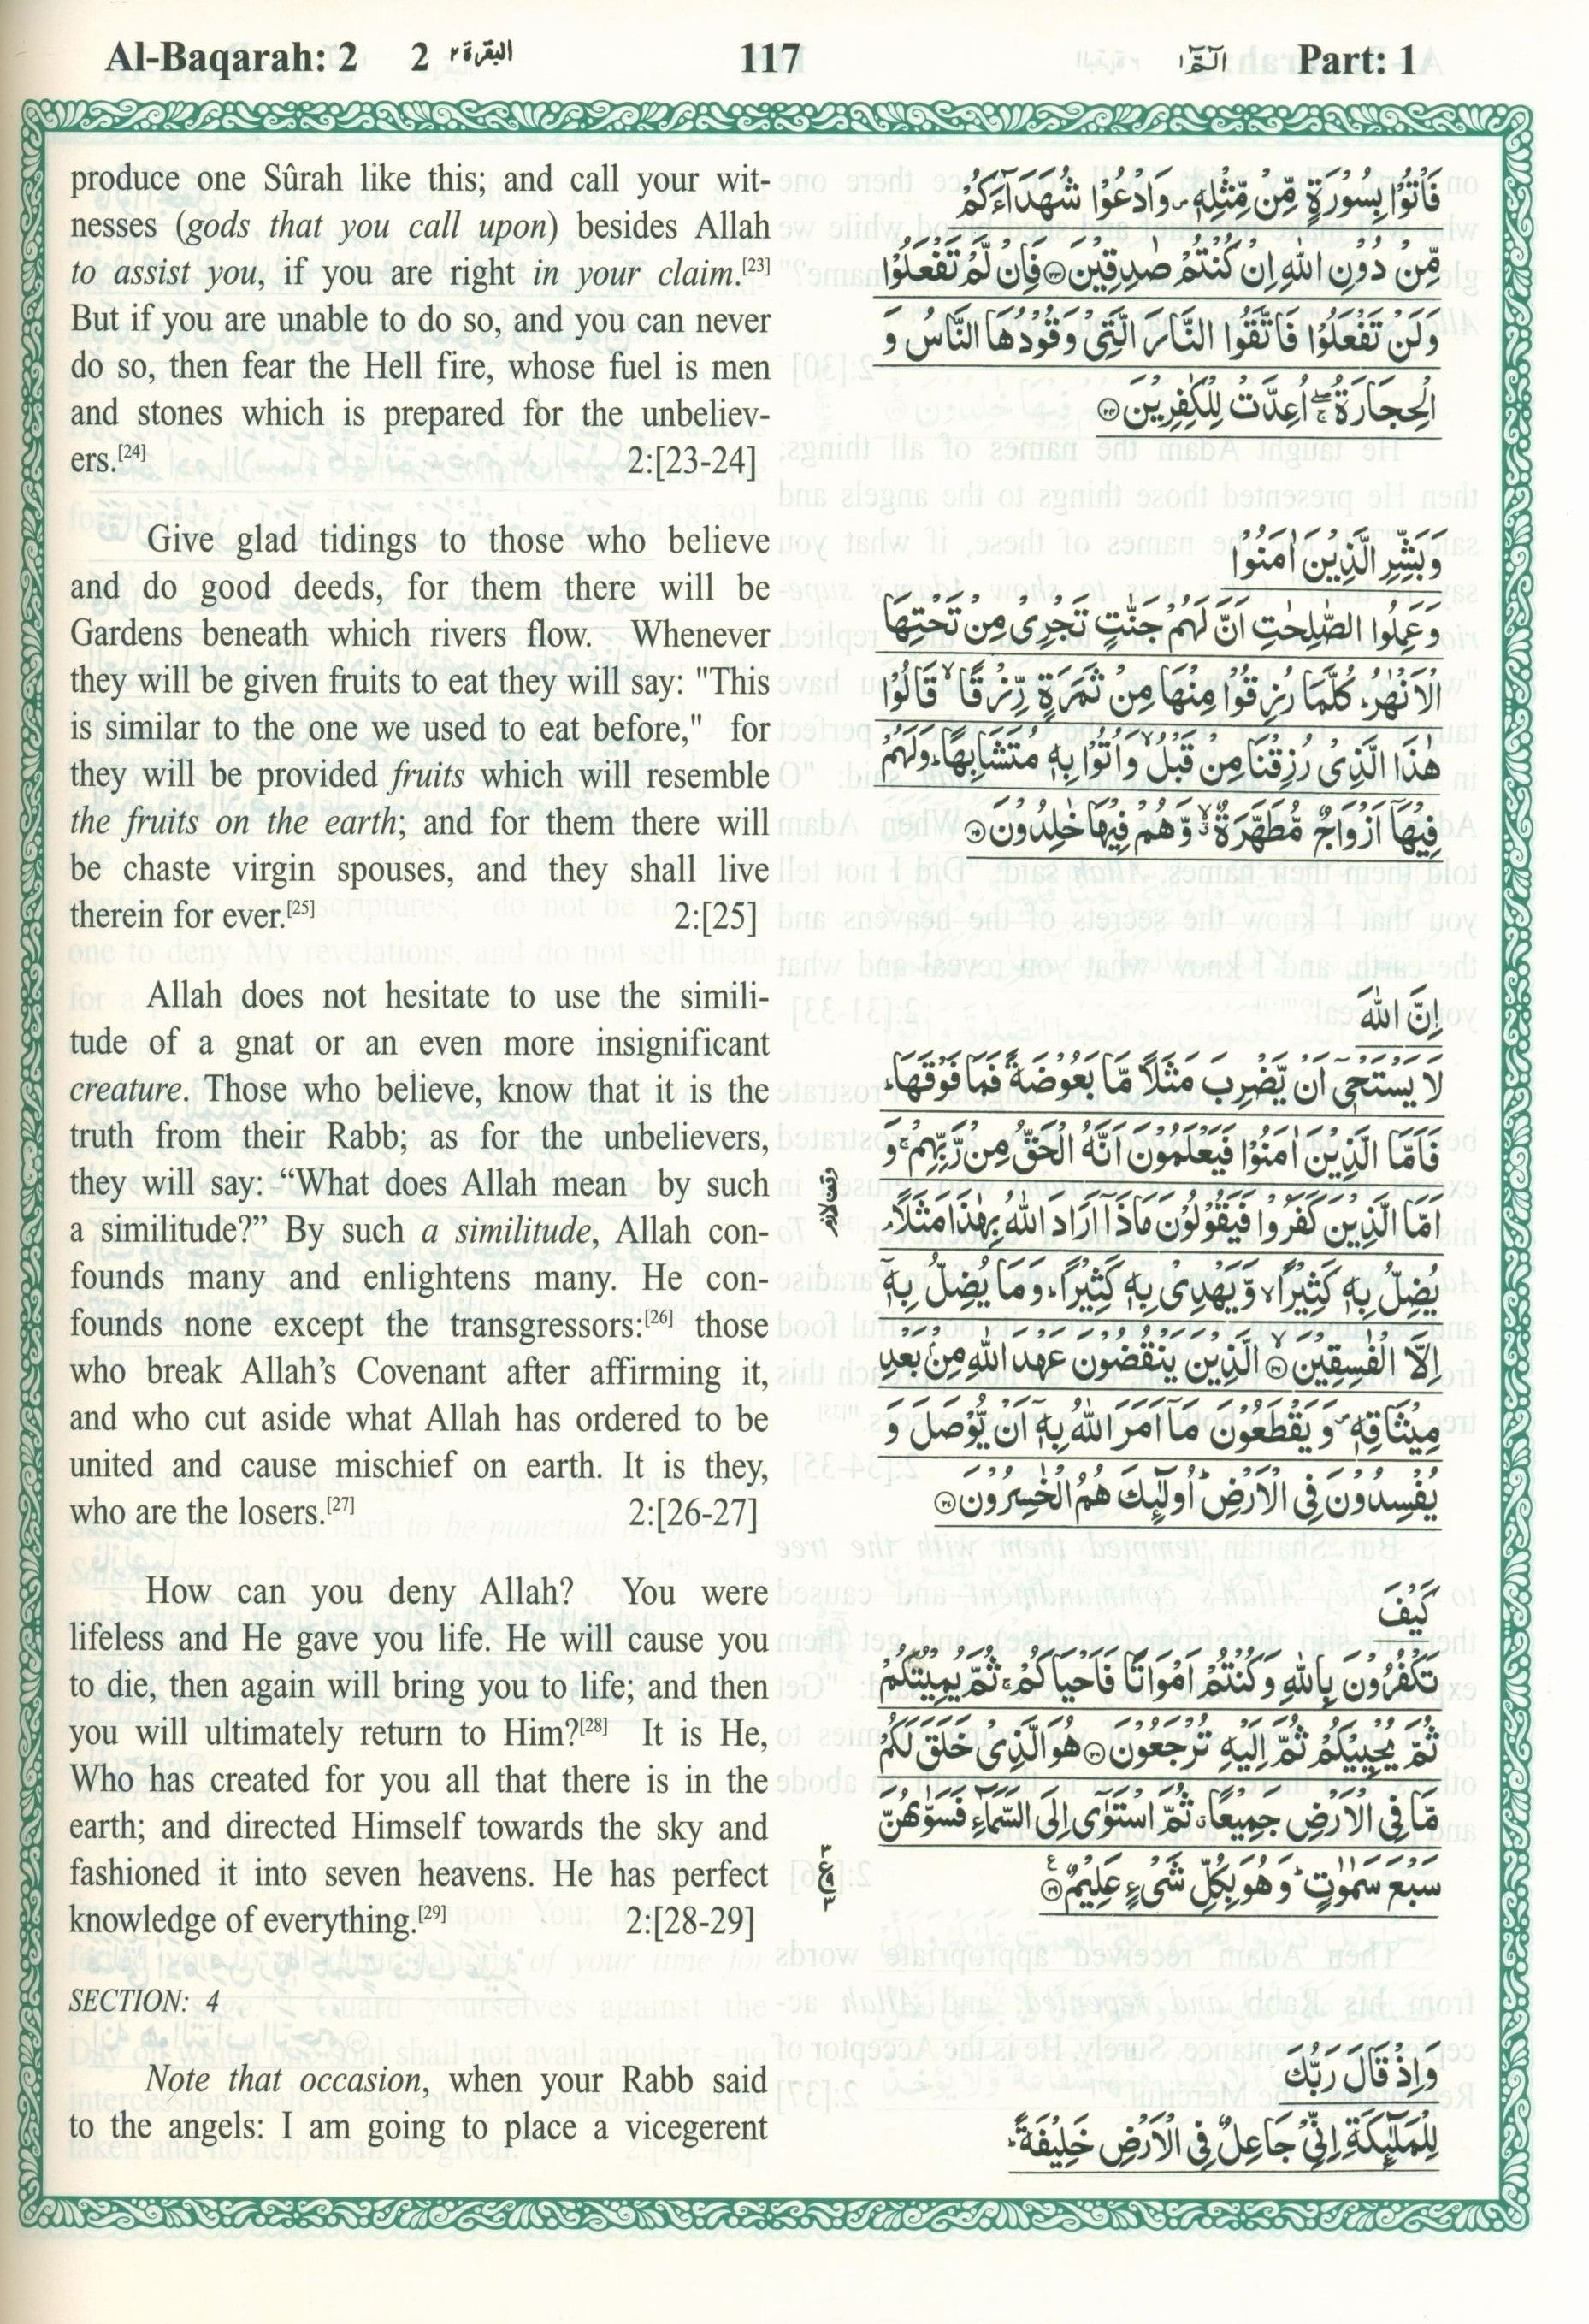 Al-Baqarah: 2 2 البقرة ٢ 117 الٓمّٓ ١ Part: 1
produce one Sûrah like this; and call your wit-
nesses (gods that you call upon) besides Allah
to assist you, if you are right in your claim.[23]
But if you are unable to do so, and you can never
do so, then fear the Hell fire, whose fuel is men
and stones which is prepared for the unbeliev-
ers.[24] 2:[23-24]
Give glad tidings to those who believe
and do good deeds, for them there will be
Gardens beneath which rivers flow. Whenever
they will be given fruits to eat they will say: "This
is similar to the one we used to eat before," for
they will be provided fruits which will resemble
the fruits on the earth; and for them there will
be chaste virgin spouses, and they shall live
therein for ever.[25] 2:[25]
Allah does not hesitate to use the simili-
tude of a gnat or an even more insignificant
creature. Those who believe, know that it is the
truth from their Rabb; as for the unbelievers,
they will say: “What does Allah mean by such
a similitude?” By such a similitude, Allah con-
founds many and enlightens many. He con-
founds none except the transgressors:[26] those
who break Allah’s Covenant after affirming it,
and who cut aside what Allah has ordered to be
united and cause mischief on earth. It is they,
who are the losers.[27] 2:[26-27]
How can you deny Allah? You were
lifeless and He gave you life. He will cause you
to die, then again will bring you to life; and then
you will ultimately return to Him?[28] It is He,
Who has created for you all that there is in the
earth; and directed Himself towards the sky and
fashioned it into seven heavens. He has perfect
knowledge of everything.[29] 2:[28-29]
SECTION: 4
Note that occasion, when your Rabb said
to the angels: I am going to place a vicegerent
فَاْتُوْا بِسُوْرَةٍ مِّنْ مِّثْلِهٖ ۪ وَادْعُوْا شُهَدَآءَكُمْ
مِّنْ دُوْنِ اللّٰهِ اِنْ كُنْتُمْ صٰدِقِيْنَ ۝٢٣ فَاِنْ لَّمْ تَفْعَلُوْا
وَلَنْ تَفْعَلُوْا فَاتَّقُوا النَّارَ الَّتِيْ وَقُوْدُهَا النَّاسُ وَ
الْحِجَارَةُ ۖۚ اُعِدَّتْ لِلْكٰفِرِيْنَ ۝٢٤
وَبَشِّرِ الَّذِيْنَ اٰمَنُوْا
وَعَمِلُوا الصّٰلِحٰتِ اَنَّ لَهُمْ جَنّٰتٍ تَجْرِيْ مِنْ تَحْتِهَا
الْاَنْهٰرُ ؕ كُلَّمَا رُزِقُوْا مِنْهَا مِنْ ثَمَرَةٍ رِّزْقًا ۙ قَالُوْا
هٰذَا الَّذِيْ رُزِقْنَا مِنْ قَبْلُ ۙ وَاُتُوْا بِهٖ مُتَشَابِهًا ؕ وَلَهُمْ
فِيْهَاۤ اَزْوَاجٌ مُّطَهَّرَةٌ ۙۗ وَّهُمْ فِيْهَا خٰلِدُوْنَ ۝٢٥
اِنَّ اللّٰهَ
لَا يَسْتَحْيٖۤ اَنْ يَّضْرِبَ مَثَلًا مَّا بَعُوْضَةً فَمَا فَوْقَهَا ؕ
فَاَمَّا الَّذِيْنَ اٰمَنُوْا فَيَعْلَمُوْنَ اَنَّهُ الْحَقُّ مِنْ رَّبِّهِمْ ۚ وَ
اَمَّا الَّذِيْنَ كَفَرُوْا فَيَقُوْلُوْنَ مَاذَاۤ اَرَادَ اللّٰهُ بِهٰذَا مَثَلًا ۘ
يُضِلُّ بِهٖ كَثِيْرًا ۙ وَّيَهْدِيْ بِهٖ كَثِيْرًا ؕ وَمَا يُضِلُّ بِهٖۤ
اِلَّا الْفٰسِقِيْنَ ۙ۝٢٦ الَّذِيْنَ يَنْقُضُوْنَ عَهْدَ اللّٰهِ مِنْۢ بَعْدِ
مِيْثَاقِهٖ ۪ وَيَقْطَعُوْنَ مَاۤ اَمَرَ اللّٰهُ بِهٖۤ اَنْ يُّوْصَلَ وَ
يُفْسِدُوْنَ فِي الْاَرْضِ ؕ اُولٰٓئِكَ هُمُ الْخٰسِرُوْنَ ۝٢٧
كَيْفَ
تَكْفُرُوْنَ بِاللّٰهِ وَكُنْتُمْ اَمْوَاتًا فَاَحْيَاكُمْ ۚ ثُمَّ يُمِيْتُكُمْ
ثُمَّ يُحْيِيْكُمْ ثُمَّ اِلَيْهِ تُرْجَعُوْنَ ۝٢٨ هُوَ الَّذِيْ خَلَقَ لَكُمْ
مَّا فِي الْاَرْضِ جَمِيْعًا ۗ ثُمَّ اسْتَوٰۤى اِلَى السَّمَآءِ فَسَوّٰىهُنَّ
سَبْعَ سَمٰوٰتٍ ؕ وَهُوَ بِكُلِّ شَيْءٍ عَلِيْمٌ ۝٢٩
وَاِذْ قَالَ رَبُّكَ
لِلْمَلٰٓئِكَةِ اِنِّيْ جَاعِلٌ فِي الْاَرْضِ خَلِيْفَةً ؕ